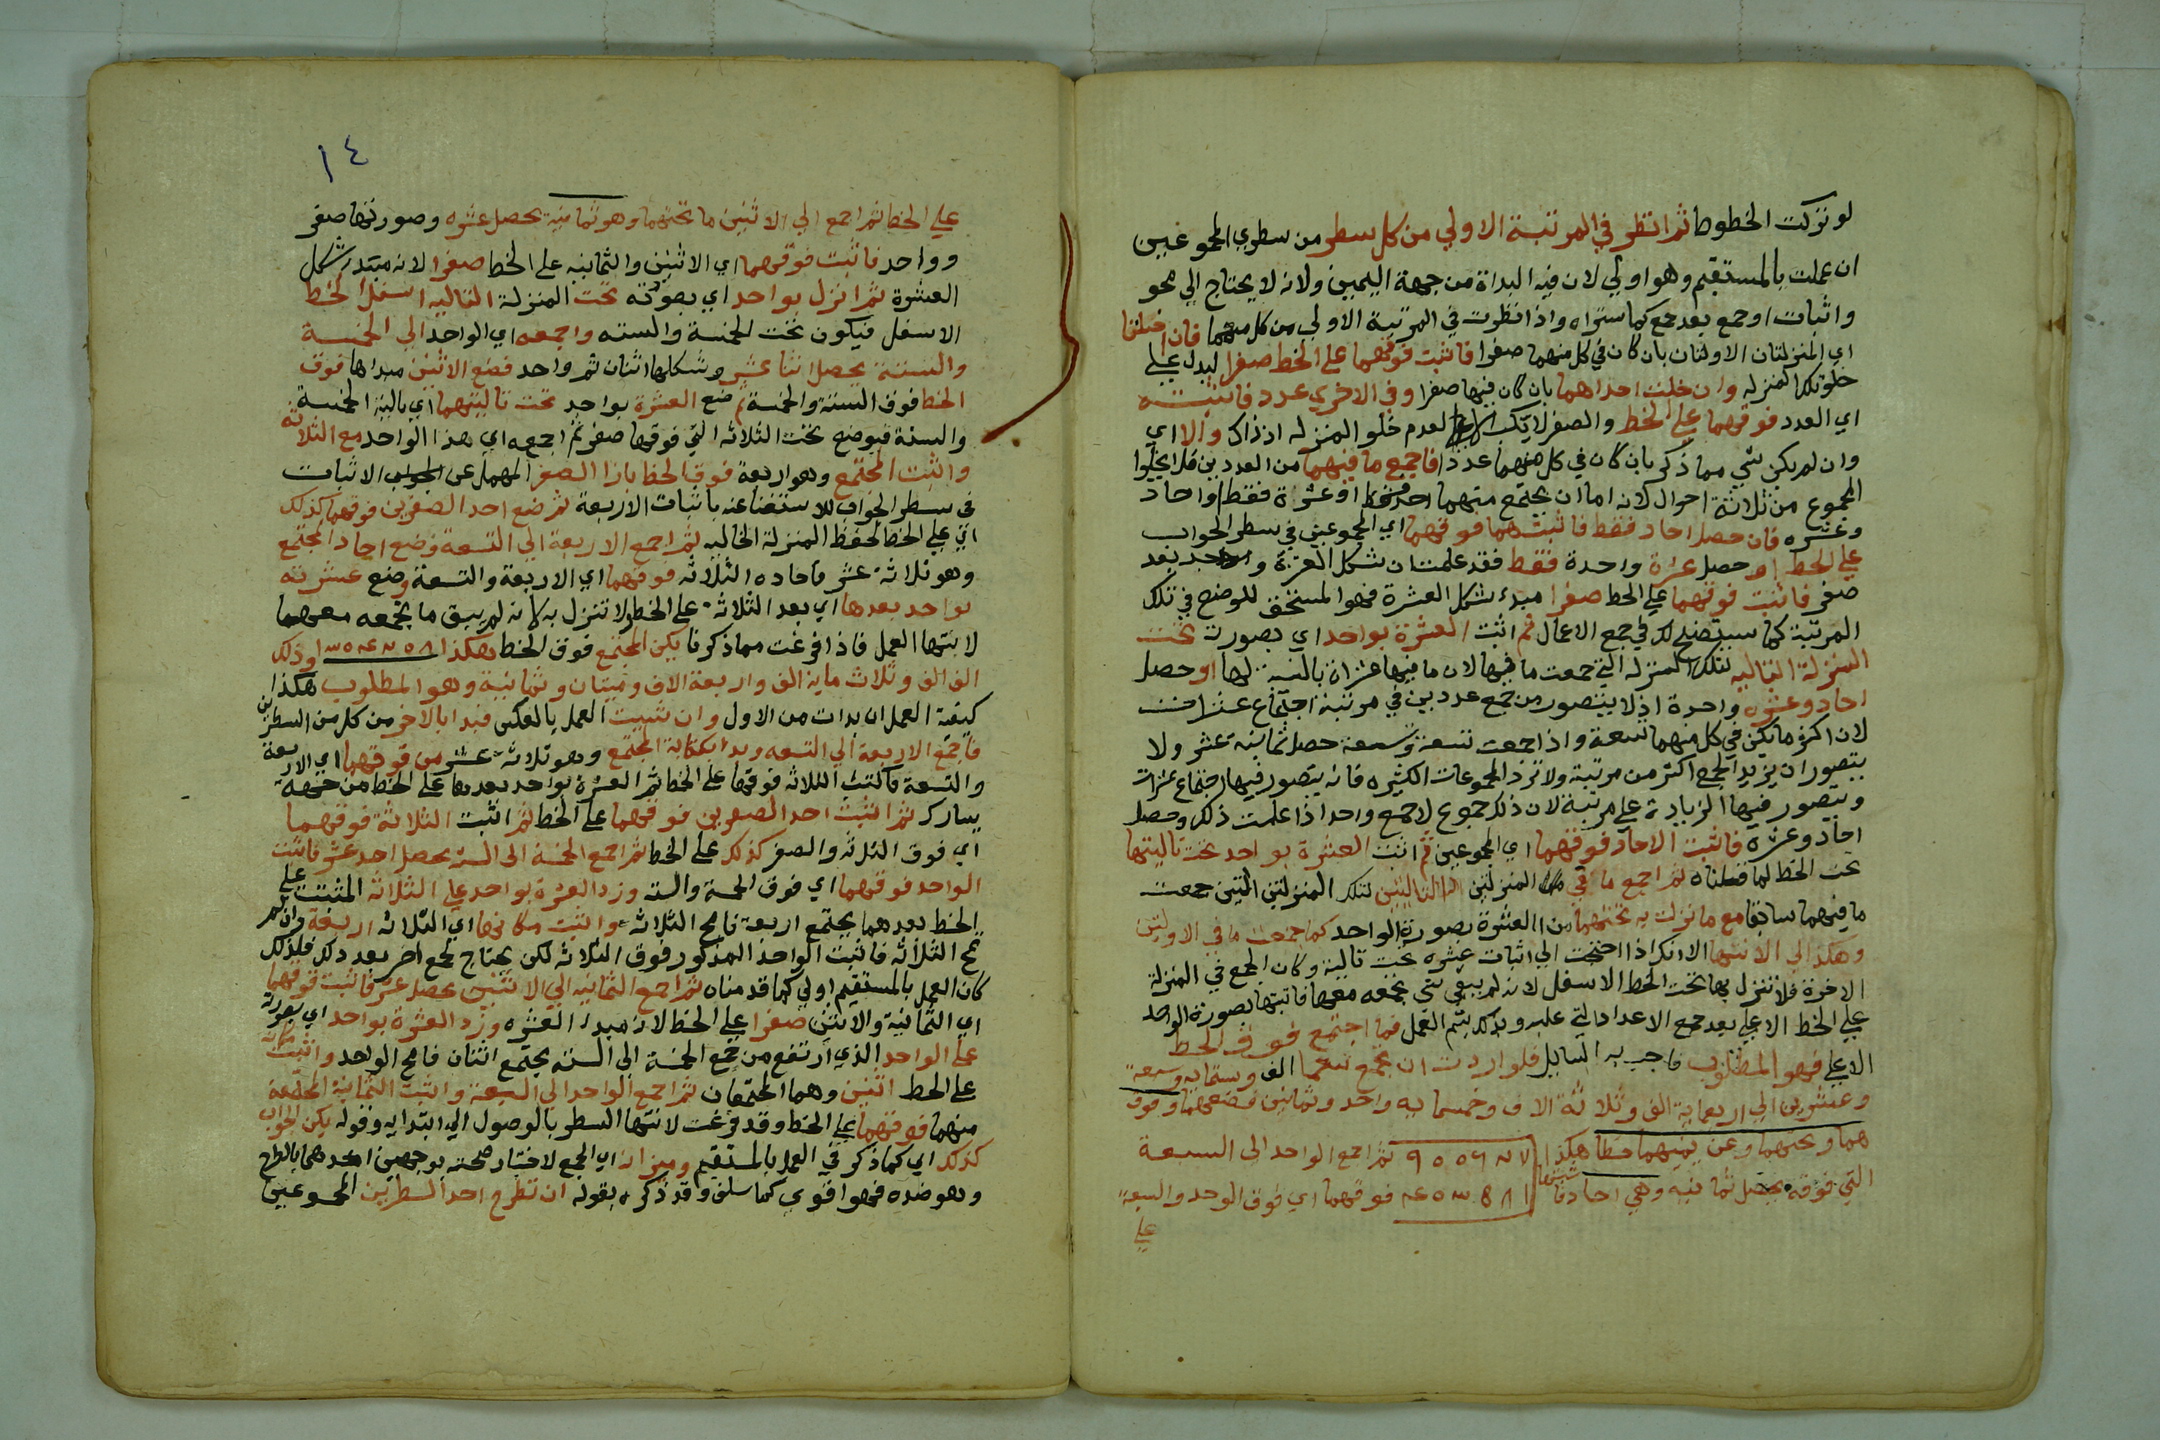 لو نزكت الخطوط ثم انظر في المرتبة الاولي من كل سطر من سطري المجموعين
ان عملت بالمستقيم وهو اولي لان فيه البداة من جهة اليمين ولانه لا يحتاج الي محو
واثبات اوجمع بعد جمع كما ستراه واذا نظرت في المرتبة الاولي من كل منهما فان خلتا
اي المنزلتان الاولتان بان كان في كل منهما صفرا فاثبت فوقهما علي الخط صفرا ليدل علي
خلو تلك المنزله وان خلت احداهما بان كان فيها صفرا وفي الاخري عدد فاثبته
اي العدد فوقهما علي الخط والصفر لا يكتب لعدم خلو المنزله اذ ذاك والا اي
وان لم يكن شي مما ذكر بان كان في كل منهما عددا فاجمع ما فيهما من العددين فلا يخلوا
المجموع من ثلاثة احوال لانه اما ان يجتمع منهما احاد فقط او عشرة فقط او احاد
وعشره فان حصل احاد فقط فاثبتهما فوقهما اي المجموعين في سطر الجواب
علي الخط او حصل عشرة واحدة فقط فقد علمت ان شكل العشرة واحد بعد
صفر فاثبت فوقهما علي الخط صفرا مبدء شكل العشرة فهو المستحق للوضع في تلك
المرتبة كما سيتضح لك في جمع الاعمال ثم اثبت العشرة بواحد اي بصورت تحت
المنزلة التاليه لتلك المنزله التي جمعت ما فيها لان ما فيها عشراة بالنسبة لها او حصل
احاد وعشره واحدة اذ لا يتصور من جمع عددين في مرتبة اجتماع عشرات
لان اكثر ما يكن في كل منهما تسعة واذا جمعت تسعة وتسعة حصل ثمانية عشر ولا
يتصور ان يزيد الجمع اكثر من مرتبة ولا ترد المجموعات الكثيره فانه يتصور فيها اجتماع عشرات
ويتصور فيها الزيادة علي مرتبة لان ذلك مجموع لا جمع واحد اذا علمت ذلك وحصل
احاد وعشره فاثبت الاحاد فوقهما اي المجموعين ثم اثبت العشرة بواحد تحت تاليتها
تحت الخط لما قلناه ثم اجمع ما في المنزلتين التاليتين لتلك المنزلتين التين جمعت
ما فيهما سابقا مع ما نزلت به تحتهما من العشرة بصورة الواحد كما جمعت ما في الاولتين
وهكذا الي الانتها الا انك اذا احتجت الي اثبات عشره تحت تالية وكان الجمع في المنزلة
الاخرة فلا تنزل بها تحت الخط الاسفل لانه لم يبقي شي تجمعه معها فاثبتها بصورة الواحد
علي الخط الاعلي بعد جمع الاعداد التي عليه وبذلك يتم العمل فما اجتمع فوق الخط
الاعلي فهو المطلوب فاجب به السايل فلو اردت ان تجمع تسعما الف وستمايه وسبعة
وعشرين الي اربعماية الف وثلاثة الاف وخمسما يه واحد وثمانين فضعهما وفوق
هما وتحتهما وعن يمينهما خطا هكذا ثم اجمع الواحد الي السبعة
التي فوقه يحصل ثمانيه وهي احاد فاثبتها فوقهما اي فوق الواحد والسبعة
علي
١٤
علي الخط ثم اجمع الي الاثنين ما تحتهما وهو ثمانية يحصل عشره وصورتها صفر
وواحد فاثبت فوقهما اي الاثنين والثمانيه علي الخط صفرا لانه مبتدء شكل
العشرة ثم انزل بواحد اي بصورته تحت المنزلة التاليه اسفل الخط
الاسفل فيكون تحت الخمسة والسته واجمعه اي الواحد الي الخمسة
والستة يحصل اثنا عشر وشكلها اثنان ثم واحد فضع الاثنين مبداها فوق
الخط فوق الستة والخمسة ثم ضع العشرة بواحد تحت تاليتهما اي تالية الخمسة
والستة فيوضع تحت الثلاثه التي فوقها صفر ثم اجمعه اي هذا الواحد مع الثلاثة
واثبت المجتمع وهو اربعة فوق الخط بازا الصفر المهمل عن الاثبات
في سطر الجواب للاستغناعنه باثبات الاربعة ثم ضع احد الصفرين فوقهما كذلك
اي علي الخط لحفظ المنزلة الخاليه ثم اجمع الاربعة الي التسعة وضع احاد المجتمع
وهو ثلاثة عشر فاحاده الثلاثه فوقهما اي الاربعة والتسعة وضع عشرته
بواحد بعدها اي بعد الثلاثة علي الخط ولا تنزل به لانه لم يبق ما تجمعه معهما
لانتها العمل فاذا فرغت مما ذكرنا يكن المجتمع فوق الخط هكذا وذلك
الف الف وثلاث ماية الف واربعة الاف وميتان وثمانية وهو المطلوب هكذا
كيفية العمل ان بدات من الاول وان شيت العمل بالعكس فبدا بالاخر من كل من السطرين
فاجمع الاربعة الي التسعه وبدا بكتابة المجتمع وهو ثلاثة عشر من فوقهما اي الاربعة
والتسعة فاكتب الثلاثه فوقها علي الخط ثم العشرة بواحد بعدها علي الخط من جهة
يسارك ثم اثبت احد الصفرين فوقهما علي الخط ثم اثبت الثلاثة فوقهما
اي فوق الثلاثه والصفر كذلك علي الخط ثم اجمع الخمسة الي الستة يحصل احد عشر فاثبت
الواحد فوقهما اي فوق الخمسة والسته وزد العشرة بواحد علي الثلاثة المثبتت علي
الخط بعدهما يجتمع اربعة فامح الثلاثة واثبت مكانها اي الثلاثه اربعة وان لم
تمح الثلاثه فاثبت الواحد المذكور فوق الثلاثه لكن يحتاج لجمع اخر بعد ذلك فلذلك
كان العمل بالمستقيم اولي كما قدمناه ثم اجمع الثمانيه الي الاثنين يحصل عشرة فاثبت فوقهما
اي الثمانية والاثنين صفرا علي الخط لانه مبدء العشره وزد العشرة بواحد اي بصورته
علي الواحد الذي ارتفع من جمع الخمسة الي الستة يجتمع اثنان فامح الواحد واثبت مكانه
علي الخط اثنين وهما المجتمعان ثم اجمع الواحد الي السبعة واثبت الثمانية المجتمعة
منهما فوقهما علي الخط وقد فرغت لانتها السطر بالوصول الي ابتدايه وقوله يكن الجواب
كذلك اي كما ذكر في العمل بالمستقيم وميزانه اي الجمع لاختبار صحته بوجهين احدهما بالطرح
وهو ضده فهو اقوي كما سلف وقد ذكره بقوله ان تطرح احد السطرين المجموعين